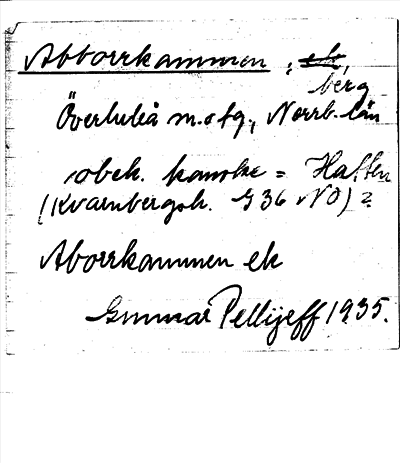 Abborrkammen, ek
berg
Överluleå m. o fg., Norrb. län
obek. kanske = Haffen
(Kvarnbergsh. G 36 NO) ?
Aborrkammen ek
Gunnar Pellijeff 1935.